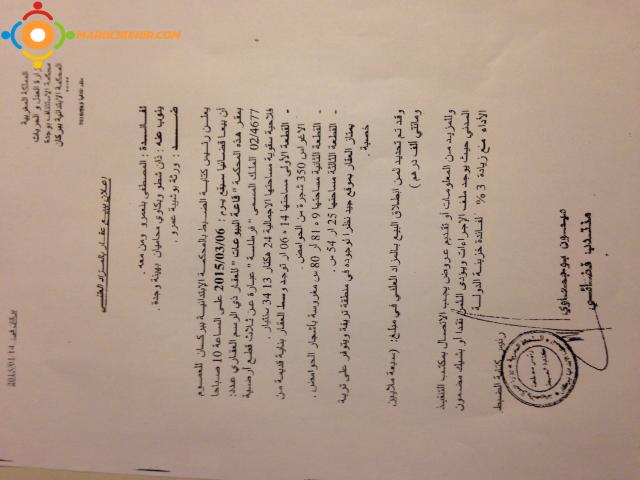 MAROCPRESSE.COM
المملكة المغربية
وزارة العدل و الحريات
محكمة الاستئناف بوجدة
المحكمة الابتدائية ببركان
بركان في: 2015/01/14
إعلان ببيع عقار بالمزاد العلني
لفائدة : المصطفى بنعمرو ومن معه.
ينوب عنه : ذان شطو ويكاوي محاميان بهيئة وجدة .
ضد : ورثة بوشيبة عمرو .
يعلن رئيس كتابة الضبط بالمحكمة الابتدائية ببركان للعموم
أن بيعا قضائيا سيقع يوم : 2015/03/06 على الساعة 10 صباحا
بمقر هذه المحكمة " قاعة البيوعات " للعقار ذي الرسم العقاري عدد:
02/4677 الملك المسمى "فرطاسة" عبارة عن ثلاث قطع أرضية
فلاحية سقوية مساحتها الاجمالية 24 هكتار 13 34 سنتيار.
- القطعة الأولى مساحتها 14 ه 06 ار توجد وسط العقار بناية قديمة من
الاغراس 350 شجرة من الحوامض.
- القطعة الثانية مساحتها 9 ه 81 ار 80 س مغروسة بأشجار الحوامض.
- القطعة الثالثة مساحتها 25 ار 54 س .
يمتاز العقار بموقع جيد نظرا لوجوده في منطقة تريفة ويتوفر على تربة
خصبة.
وقد تم تحديد ثمن انطلاق البيع بالمزاد العلني في مبلغ: (سبعة ملايين
ومائتي ألف درهم )
وللمزيد من المعلومات أو تقديم عروض يجب الاتصال بمكتب التنفيذ
المدني حيث يوجد ملف الإجراءات ويؤدى الثمن نقدا أو بشيك مضمون
الأداء مع زيادة 3 % لفائدة خزينة الدولة
رئيس كتابة الضبط
ميمون بوجمعاوي
منتدب قضائي